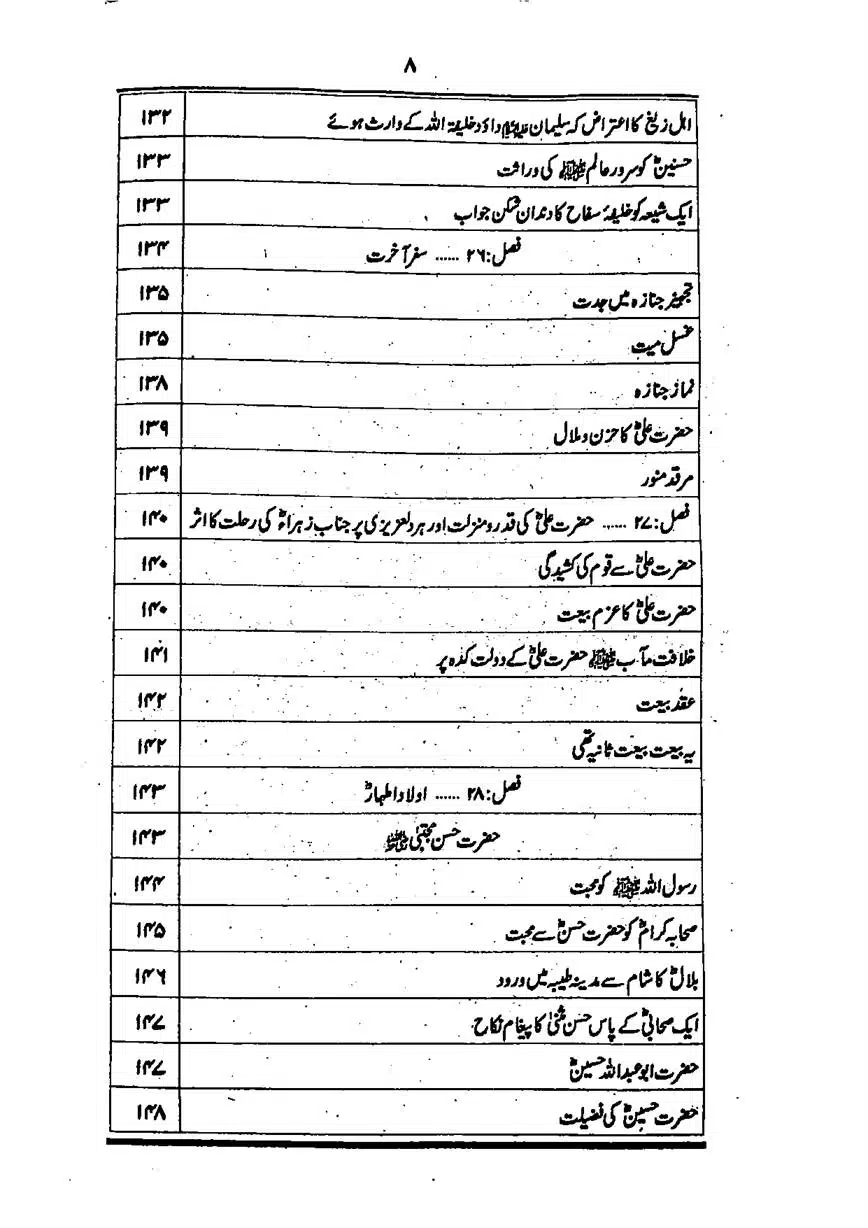 ۸
اہل زیغ کا اعتراض کہ سلیمان علیہ السلام داؤد خلیفۃ اللہ کے وارث ہوئے ۱۳۲
حسنینؓ کو سرور عالم ﷺ کی وراثت ۱۳۳
ایک شیعہ کو خلیفۂ سفاح کا دندان شکن جواب ۱۳۳
فصل:۲۶ ...... سفر آخرت ۱۳۴
تجہیز جنازہ میں جدت ۱۳۵
غسل میت ۱۳۵
نماز جنازہ ۱۳۸
حضرت علیؓ کا حزن و ملال ۱۳۹
مرقد منور ۱۳۹
فصل:۲۷ ...... حضرت علیؓ کی قدر و منزلت اور ہردلعزیزی پر جناب زہراءؓ کی رحلت کا اثر ۱۴۰
حضرت علیؓ سے قوم کی کشیدگی ۱۴۰
حضرت علیؓ کا عزم بیعت ۱۴۰
خلافت مآب ﷺ حضرت علیؓ کے دولت کدہ پر ۱۴۱
عقد بیعت ۱۴۲
یہ بیعت بیعت ثانیہ تھی ۱۴۲
فصل:۲۸ ...... اولاد اطہارؓ ۱۴۳
حضرت حسن مجتبیٰ رضی اللہ عنہ ۱۴۳
رسول اللہ ﷺ کو محبت ۱۴۴
صحابہ کرامؓ کو حضرت حسنؓ سے محبت ۱۴۵
بلالؓ کا شام سے مدینہ طیبہ میں ورود ۱۴۶
ایک صحابیؓ کے پاس حسن مثنیٰ کا پیغام نکاح ۱۴۷
حضرت ابوعبداللہ حسینؓ ۱۴۷
حضرت حسینؓ کی فضیلت ۱۴۸